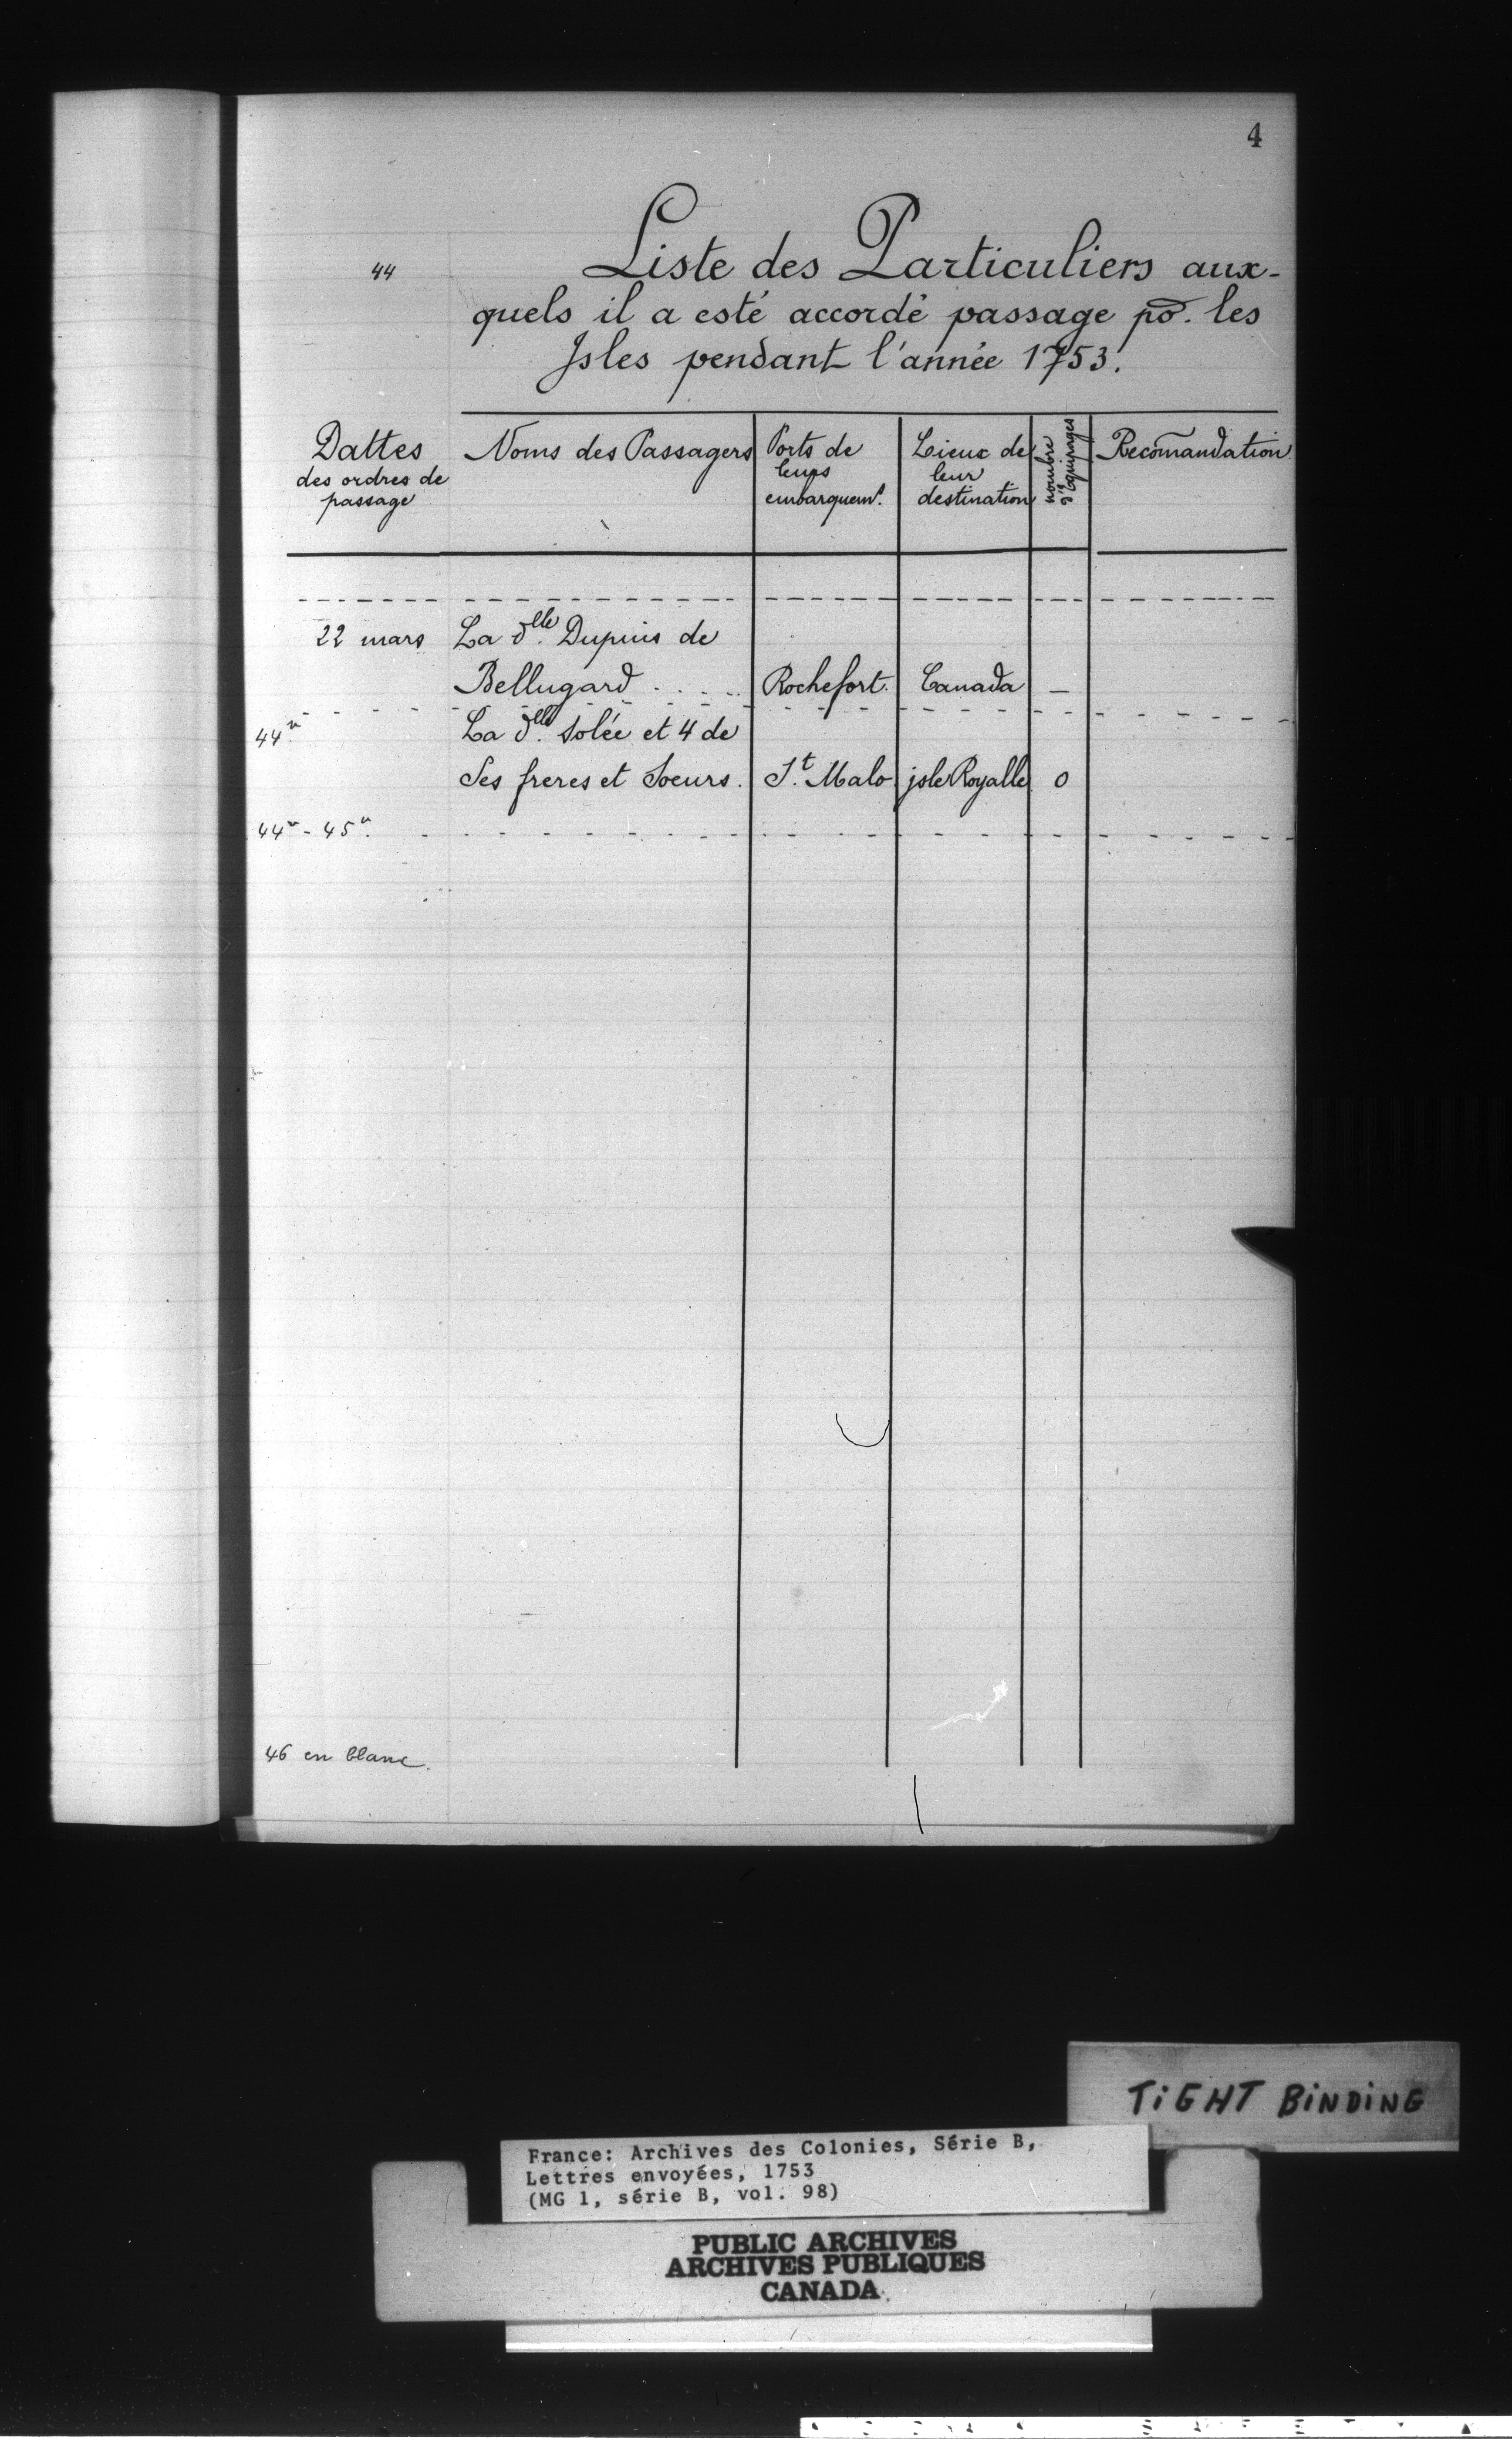 4
44
Liste des Particuliers aux-
quels il a esté accordé passage po. les
Isles pendant l'année 1753.
Dattes des ordres de passage | Noms des Passagers | Ports de leurs embarquemt. | Lieux de leur destination | nombre d'équipages | Recom̃andation
22 mars La dlle. Dupuis de
Bellugard . . . . Rochefort. Canada —
44v.
La dlle. Solée et 4 de
Ses freres et Soeurs. St. Malo jsle Royalle 0
44v - 45v.
46 en blanc.
TiGHT BiNDiNG
France: Archives des Colonies, Série B,
Lettres envoyées, 1753
(MG 1, série B, vol. 98)
PUBLIC ARCHIVES
ARCHIVES PUBLIQUES
CANADA